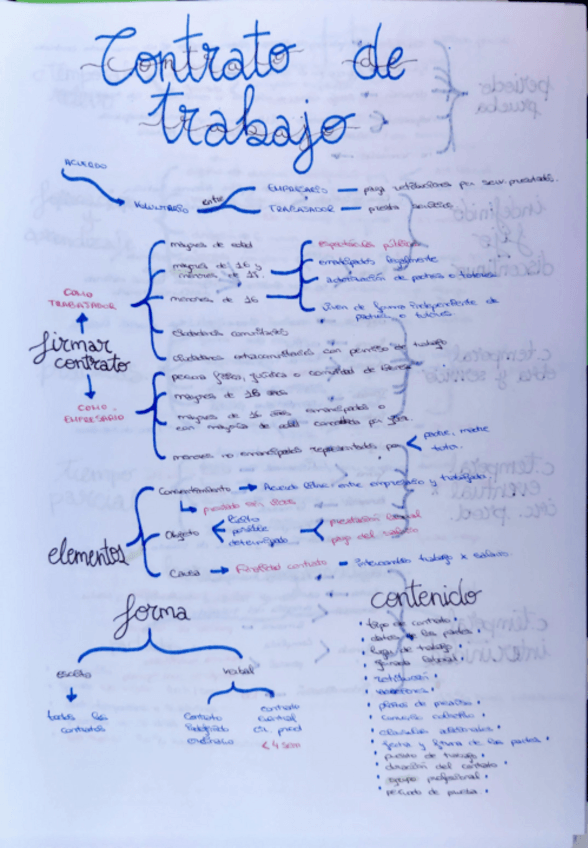 Contrato de
trabajo
ACUERDO
VOLUNTARIO entre
EMPRESARIO — paga retribuciones por serv. prestados.
TRABAJADOR — presta servicios.
COMO
TRABAJADOR
mayores de edad
mayores de 16 y
menores de 18.
menores de 16
espectáculos públicos
emancipados legalmente
autorización de padres o tutores
viven de forma independiente de
padres o tutores
ciudadanos comunitarios
ciudadanos extracomunitarios con permiso de trabajo
firmar
contrato
COMO
EMPRESARIO
persona física, jurídica o comunidad de bienes
mayores de 18 años
mayores de 16 años emancipados o
con mayoría de edad concedida por juez.
menores no emancipados representados por
padre, madre
tutor.
elementos
Consentimiento → Acuerdo libre entre empresario y trabajador
prestado sin vicios
Objeto
lícito
posible
determinado
prestación laboral
pago del salario
Causa → Finalidad contrato — intercambio trabajo x salario.
forma
escrito
todos los
contratos
verbal
contrato
indefinido
ordinario
contrato
eventual
cir. prod
< 4 sem
contenido
tipo de contrato
datos de las partes
lugar de trabajo
jornada laboral
retribución
vacaciones
plazos de preaviso
convenio colectivo
cláusulas adicionales
fecha y firma de las partes
puesto de trabajo
duración del contrato
grupo profesional
periodo de prueba